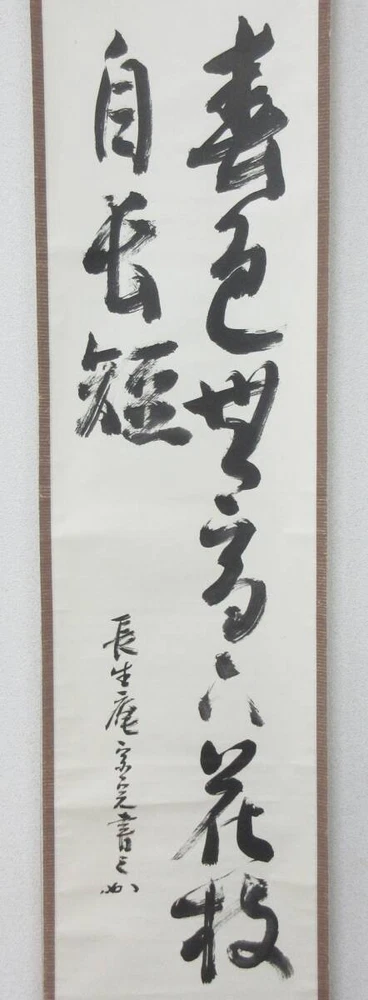 春色無高下花枝
自長短
長生庵宗完書之